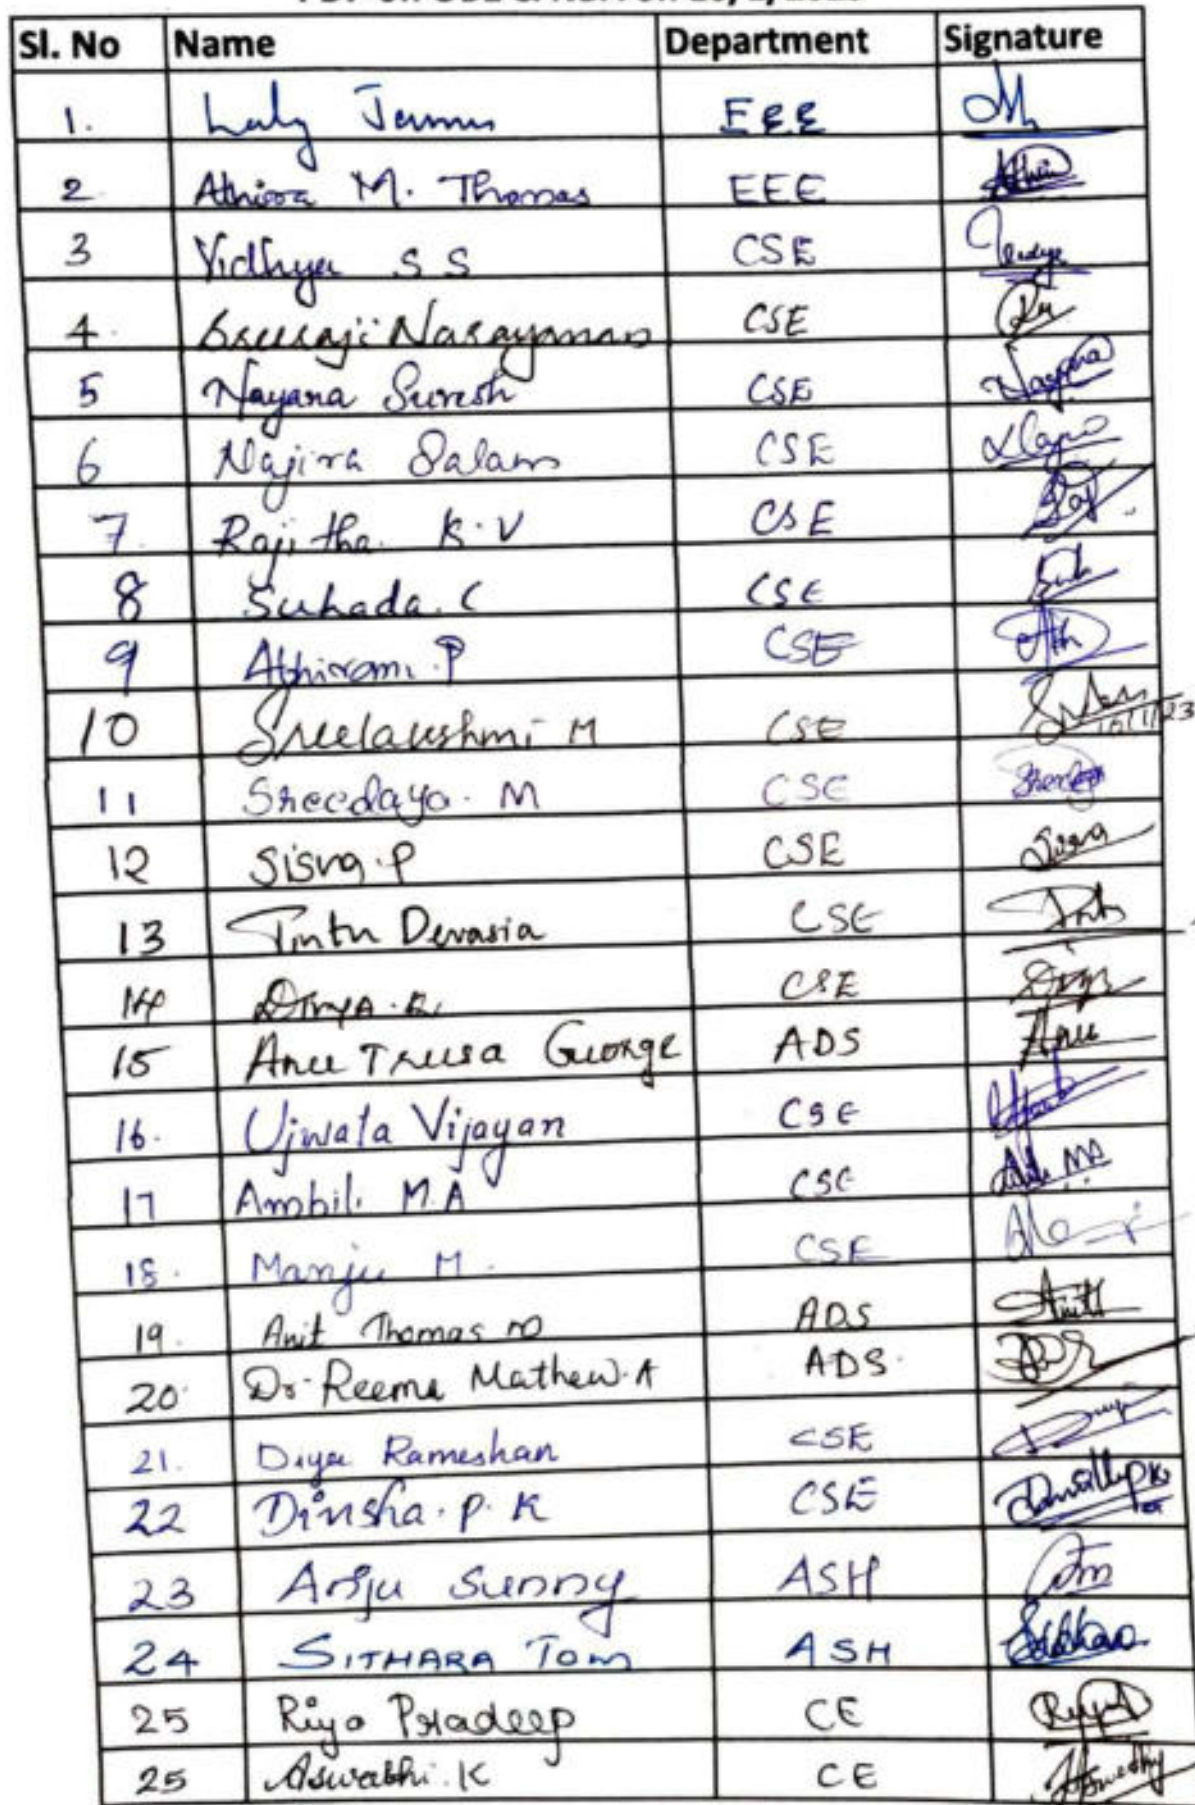 Sl. No Name Department Signature
1. Laly James EEE
2 Athira M. Thomas EEE
3 Vidhya S S CSE
4. Sreeraji Narayanan CSE
5 Nayana Suresh CSE Nayana
6 Najira Salam CSE
7. Rajitha K.V CSE
8 Suhada. C CSE
9 Abhirami. P CSE
10 Sreelakshmi M CSE 10/1/23
11 Sreedaya. M CSE
12 Sisna. P CSE Sisna
13 Tintu Devasia CSE
14 Divya. CSE
15 Anu Treesa George ADS Anu
16. Ujwala Vijayan CSE
17 Ambili M.A CSE
18. Manju M. CSE
19. Anit Thomas M ADS
20. Dr. Reema Mathew. A ADS.
21. Diya Rameshan CSE
22 Dinsha. P. K CSE
23 Anju Sunny ASH
24 SITHARA TOM ASH
25 Riya Pradeep CE
25 Aswathi. K CE